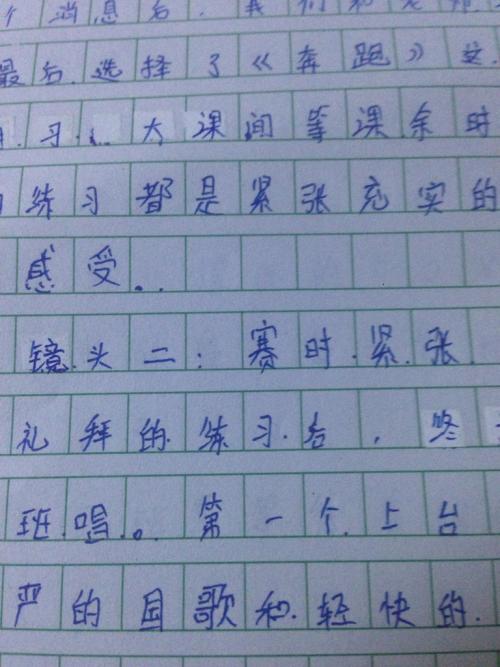 个消息后,我们和老师
最后选择了《奔跑》这
习...大课间等课余时
练习都是紧张充实的
感受..
镜头二:赛时紧张
礼拜的练习后,终
班唱。第一个上台
严的国歌和轻快的